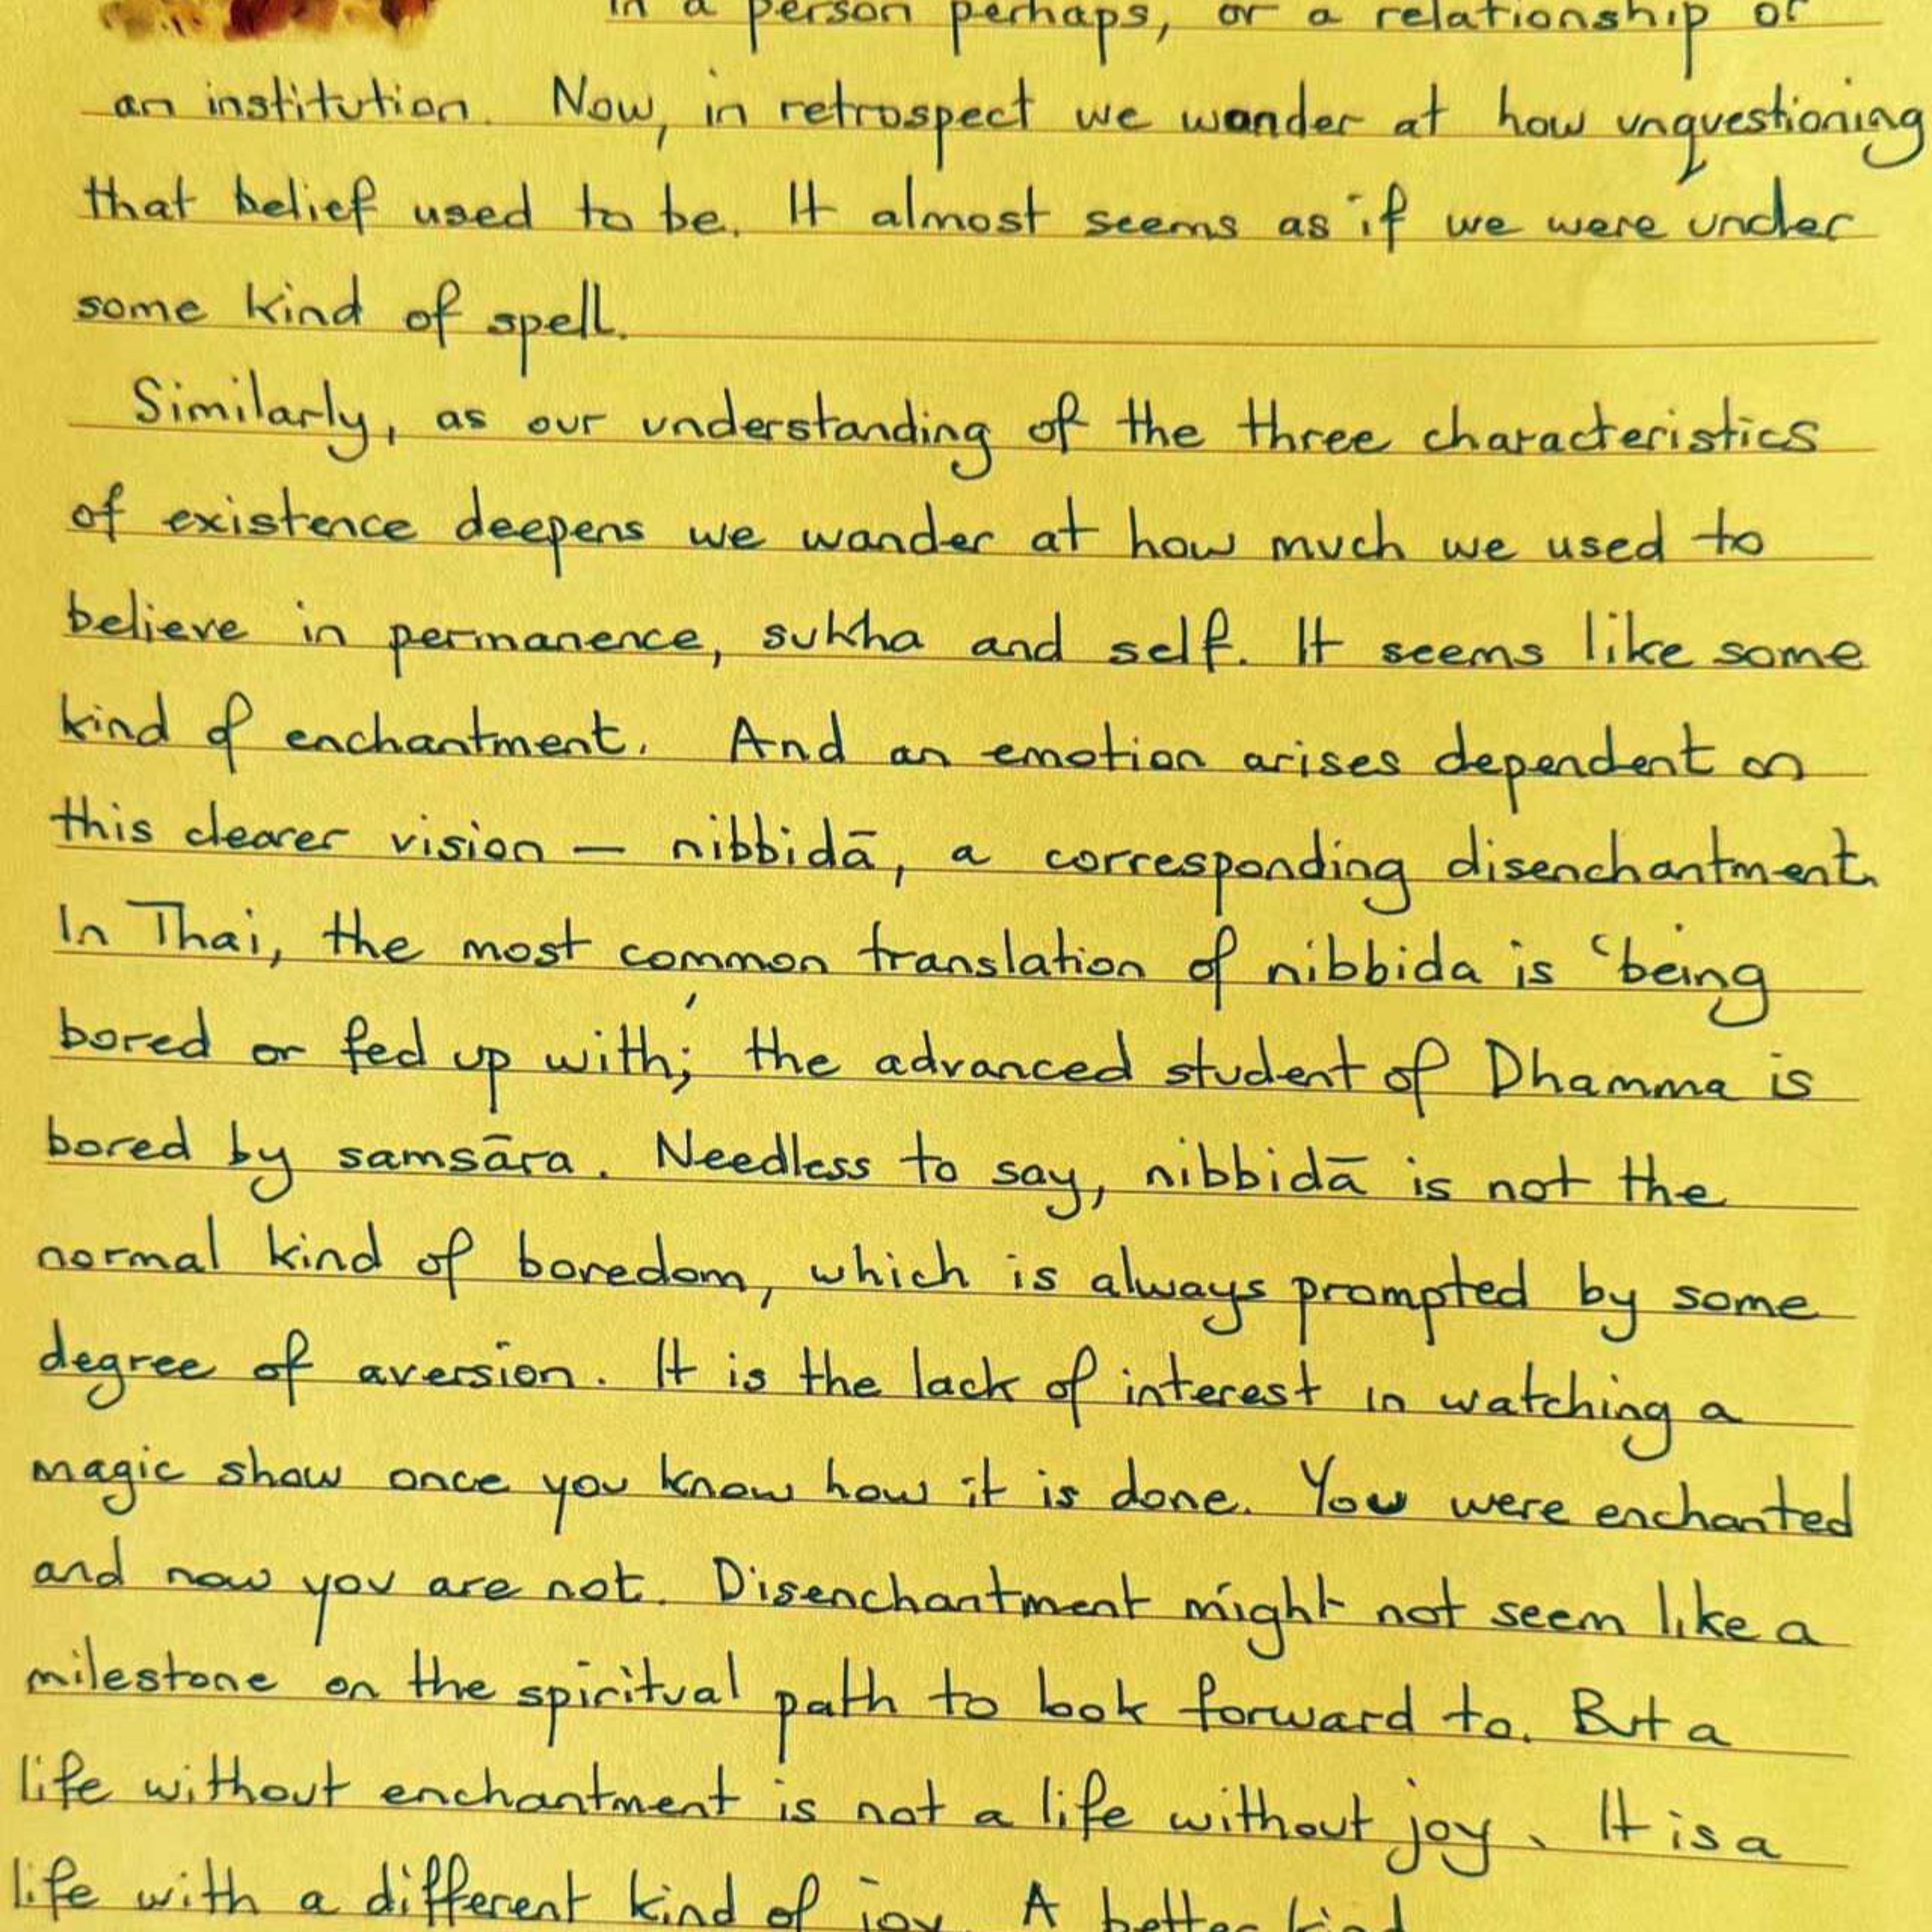 in a person perhaps, or a relationship or
an institution. Now, in retrospect we wonder at how unquestioning
that belief used to be. It almost seems as if we were under
some kind of spell.
Similarly, as our understanding of the three characteristics
of existence deepens we wonder at how much we used to
believe in permanence, sukha and self. It seems like some
kind of enchantment. And an emotion arises dependent on
this clearer vision – nibbidā, a corresponding disenchantment.
In Thai, the most common translation of nibbida is 'being
bored or fed up with'; the advanced student of Dhamma is
bored by samsāra. Needless to say, nibbidā is not the
normal kind of boredom, which is always prompted by some
degree of aversion. It is the lack of interest in watching a
magic show once you know how it is done. You were enchanted
and now you are not. Disenchantment might not seem like a
milestone on the spiritual path to look forward to. But a
life without enchantment is not a life without joy. It is a
life with a different kind of joy. A better kind.